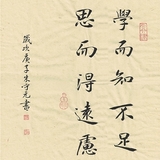 學而知不足
思而得遠慮
歲次庚子朱守光書